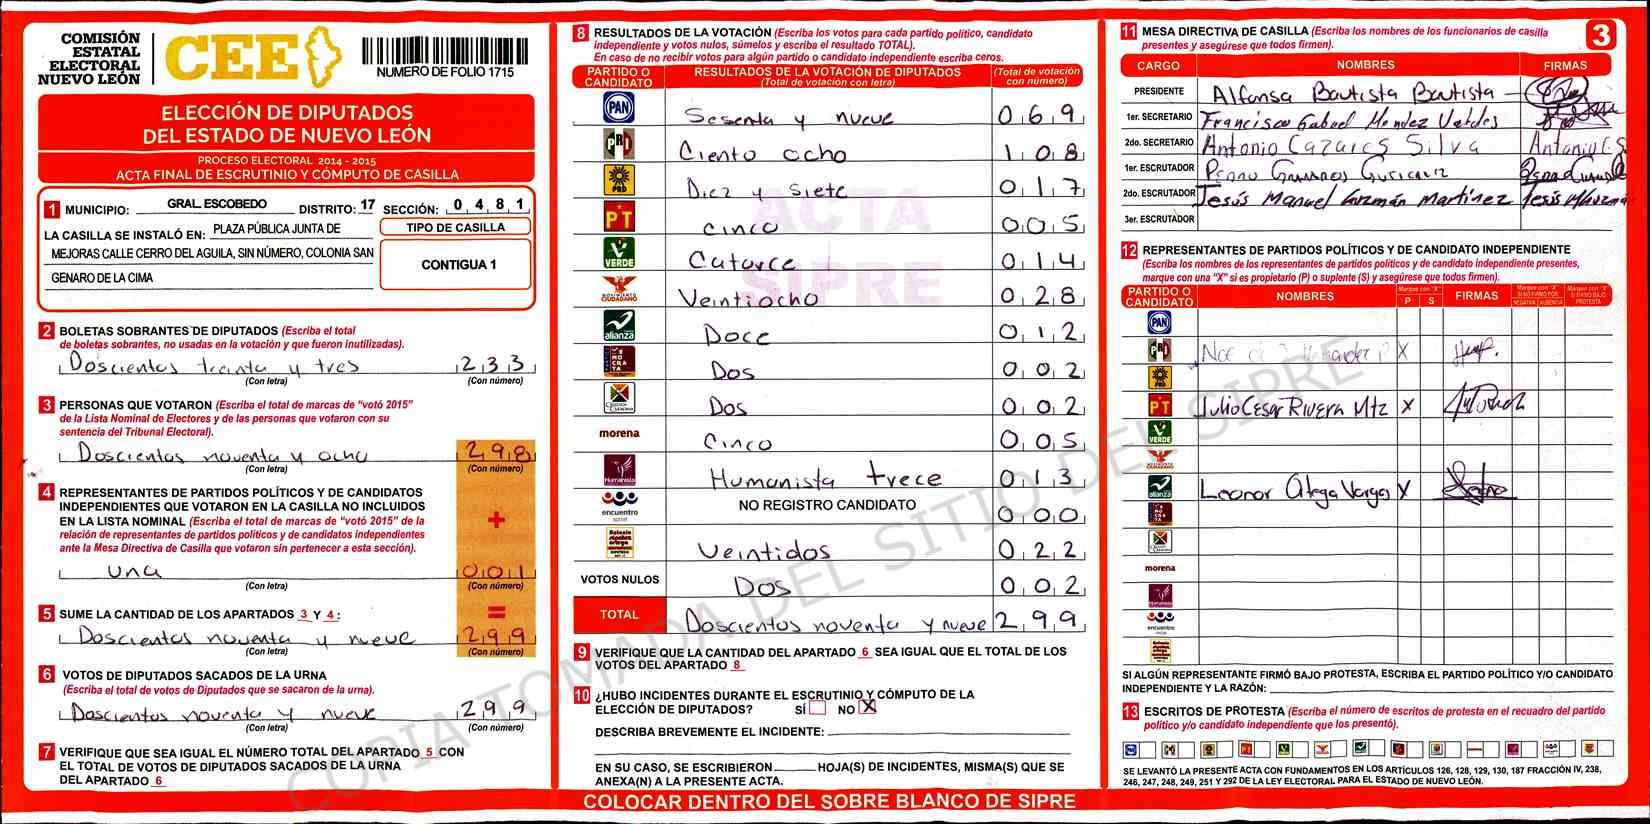 COMISIÓN
ESTATAL
ELECTORAL
NUEVO LEÓN
CEE
NUMERO DE FOLIO 1715
ELECCIÓN DE DIPUTADOS
DEL ESTADO DE NUEVO LEÓN
PROCESO ELECTORAL 2014 - 2015
ACTA FINAL DE ESCRUTINIO Y CÓMPUTO DE CASILLA
1 MUNICIPIO: GRAL. ESCOBEDO DISTRITO: 17 SECCIÓN: 0 4 8 1
LA CASILLA SE INSTALÓ EN: PLAZA PÚBLICA JUNTA DE
MEJORAS CALLE CERRO DEL AGUILA, SIN NÚMERO, COLONIA SAN
GENARO DE LA CIMA
TIPO DE CASILLA
CONTIGUA 1
2 BOLETAS SOBRANTES DE DIPUTADOS (Escriba el total
de boletas sobrantes, no usadas en la votación y que fueron inutilizadas).
Doscientos treinta y tres 2 3 3
(Con letra) (Con número)
3 PERSONAS QUE VOTARON (Escriba el total de marcas de "votó 2015"
de la Lista Nominal de Electores y de las personas que votaron con su
sentencia del Tribunal Electoral).
Doscientos noventa y ocho 2 9 8
(Con letra) (Con número)
4 REPRESENTANTES DE PARTIDOS POLÍTICOS Y DE CANDIDATOS
INDEPENDIENTES QUE VOTARON EN LA CASILLA NO INCLUIDOS
EN LA LISTA NOMINAL (Escriba el total de marcas de "votó 2015" de la
relación de representantes de partidos políticos y de candidatos independientes
ante la Mesa Directiva de Casilla que votaron sin pertenecer a esta sección).
+
una 0 0 1
(Con letra) (Con número)
5 SUME LA CANTIDAD DE LOS APARTADOS 3 Y 4:
=
Doscientos noventa y nueve 2 9 9
(Con letra) (Con número)
6 VOTOS DE DIPUTADOS SACADOS DE LA URNA
(Escriba el total de votos de Diputados que se sacaron de la urna).
Doscientos noventa y nueve 2 9 9
(Con letra) (Con número)
7 VERIFIQUE QUE SEA IGUAL EL NÚMERO TOTAL DEL APARTADO 5 CON
EL TOTAL DE VOTOS DE DIPUTADOS SACADOS DE LA URNA
DEL APARTADO 6
8 RESULTADOS DE LA VOTACIÓN (Escriba los votos para cada partido político, candidato
independiente y votos nulos, súmelos y escriba el resultado TOTAL).
En caso de no recibir votos para algún partido o candidato independiente escriba ceros.
PARTIDO O CANDIDATO RESULTADOS DE LA VOTACIÓN DE DIPUTADOS (Total de votación con letra) (Total de votación con número)
PAN Sesenta y nueve 0 6 9
PRI Ciento ocho 1 0 8
PRD Diez y siete 0 1 7
PT cinco 0 0 5
VERDE Catorce 0 1 4
MOVIMIENTO CIUDADANO Veintiocho 0 2 8
alianza Doce 0 1 2
DEMOCRATA Dos 0 0 2
Dos 0 0 2
morena Cinco 0 0 5
Humanista Humanista trece 0 1 3
encuentro social NO REGISTRO CANDIDATO 0 0 0
Veintidos 0 2 2
VOTOS NULOS Dos 0 0 2
TOTAL Doscientos noventa y nueve 2 9 9
ACTA
SIPRE
9 VERIFIQUE QUE LA CANTIDAD DEL APARTADO 6 SEA IGUAL QUE EL TOTAL DE LOS
VOTOS DEL APARTADO 8
10 ¿HUBO INCIDENTES DURANTE EL ESCRUTINIO Y CÓMPUTO DE LA
ELECCIÓN DE DIPUTADOS? SÍ NO X
DESCRIBA BREVEMENTE EL INCIDENTE:
EN SU CASO, SE ESCRIBIERON HOJA(S) DE INCIDENTES, MISMA(S) QUE SE
ANEXA(N) A LA PRESENTE ACTA.
11 MESA DIRECTIVA DE CASILLA (Escriba los nombres de los funcionarios de casilla
presentes y asegúrese que todos firmen).
3
CARGO NOMBRES FIRMAS
PRESIDENTE Alfonsa Bautista Bautista
1er. SECRETARIO Francisco Gabriel Mendez Valdes
2do. SECRETARIO Antonio Cazares Silva Antonio C.S.
1er. ESCRUTADOR
2do. ESCRUTADOR Jesús Manuel Guzmán Martínez
3er. ESCRUTADOR
12 REPRESENTANTES DE PARTIDOS POLÍTICOS Y DE CANDIDATO INDEPENDIENTE
(Escriba los nombres de los representantes de partidos políticos y de candidato independiente presentes,
marque con una "X" si es propietario (P) o suplente (S) y asegúrese que todos firmen).
PARTIDO O CANDIDATO NOMBRES Marque con "X" P S FIRMAS Marque con "X" SI NO FIRMÓ POR: NEGATIVA AUSENCIA Marque con "X" SI FIRMÓ BAJO PROTESTA
PAN
PRI X
PRD
PT Julio Cesar Rivera Mtz X
VERDE
alianza Leonor Ortega Vargas X
morena
encuentro social
SI ALGÚN REPRESENTANTE FIRMÓ BAJO PROTESTA, ESCRIBA EL PARTIDO POLÍTICO Y/O CANDIDATO
INDEPENDIENTE Y LA RAZÓN:
13 ESCRITOS DE PROTESTA (Escriba el número de escritos de protesta en el recuadro del partido
político y/o candidato independiente que los presentó).
SE LEVANTÓ LA PRESENTE ACTA CON FUNDAMENTOS EN LOS ARTÍCULOS 126, 128, 129, 130, 187 FRACCIÓN IV, 238,
246, 247, 248, 249, 251 Y 292 DE LA LEY ELECTORAL PARA EL ESTADO DE NUEVO LEÓN.
COLOCAR DENTRO DEL SOBRE BLANCO DE SIPRE
COPIA TOMADA DEL SITIO DEL SIPRE